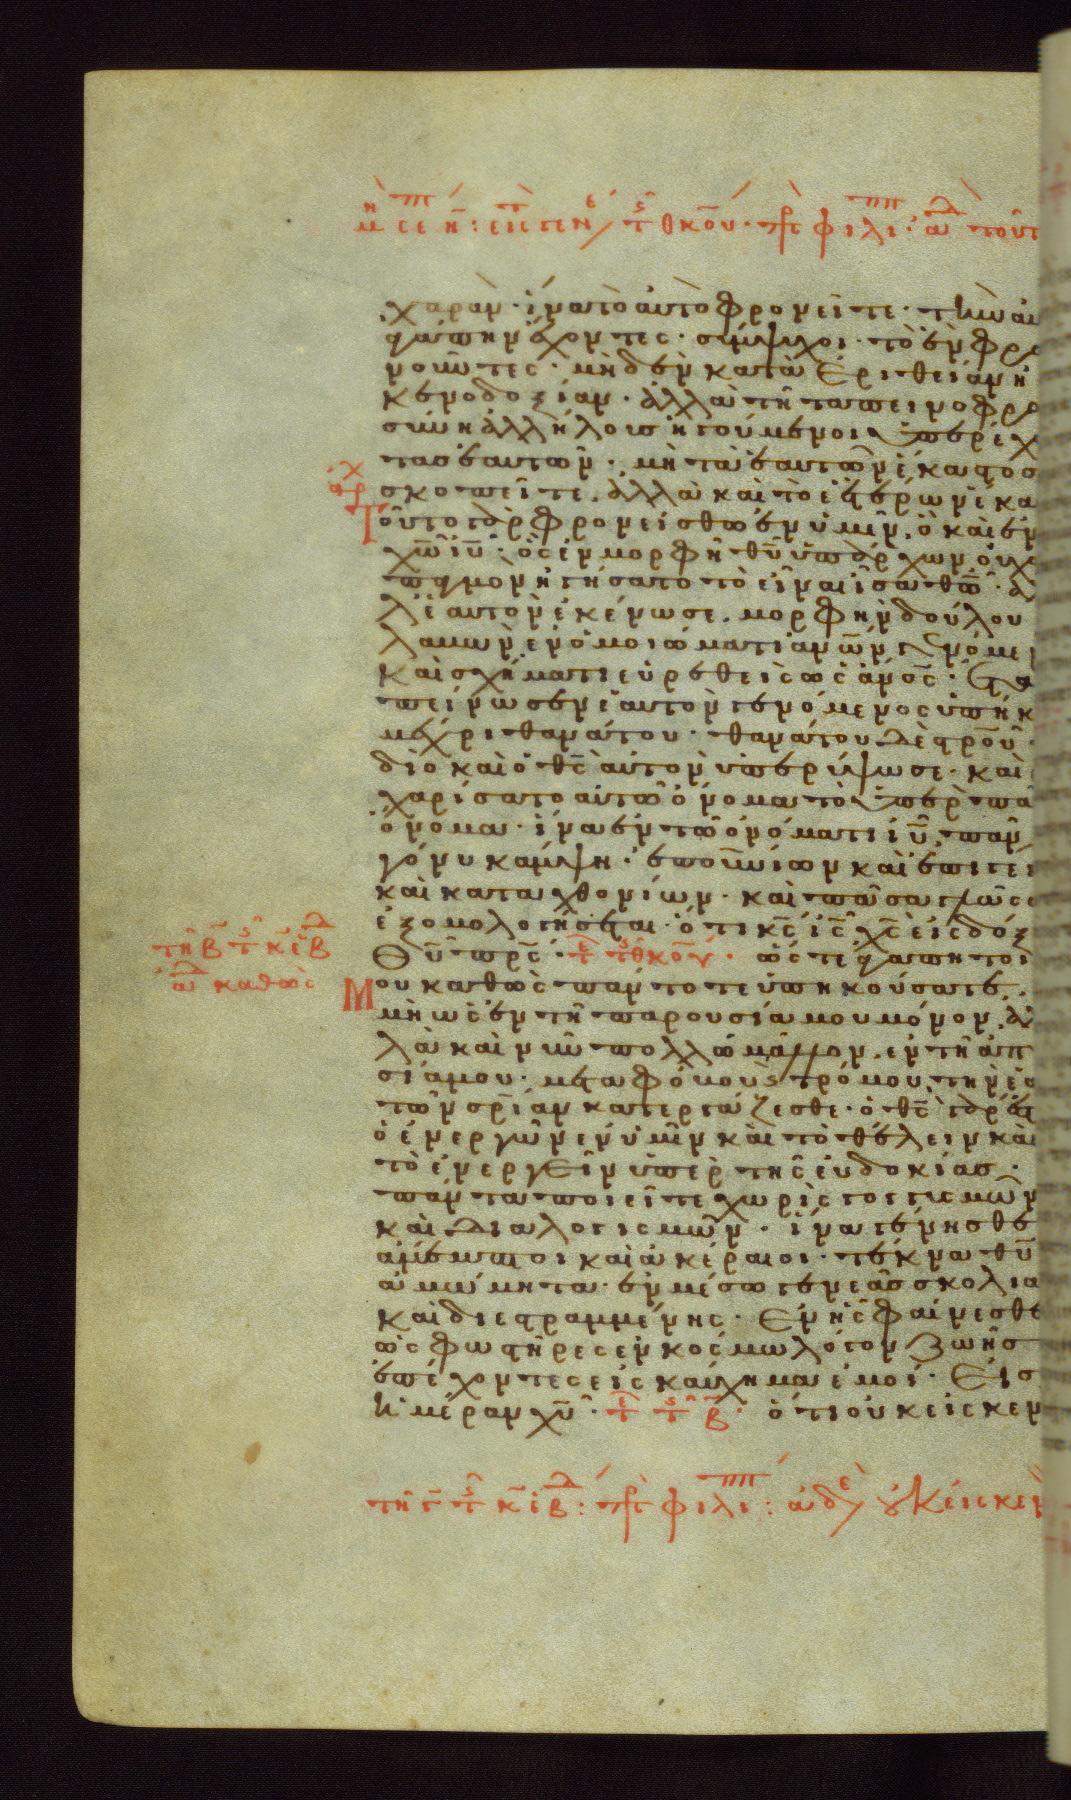 χαρὰν· ἵνα τὸ αὐτὸ φρονεῖτε· τὴν αὐ
γάπην ἔχοντες· σύμψυχοι· τὸ ἓν φρο
νοῦντες· μηδὲν κατὰ ἐριθείαν ἢ
κενοδοξίαν· ἀλλὰ τῇ ταπεινοφρο
σύνῃ ἀλλήλοις ἡγούμενοι ὑπερέχ
τας ἑαυτῶν· μὴ τὰ ἑαυτῶν ἕκαστος
σκοπεῖτε· ἀλλὰ καὶ τὸ ἑτέρων ἕκα
Τοῦτο γὰρ φρονείσθω ἐν ὑμῖν· ὃ καὶ ἐν
χ̅ω̅ ι̅υ̅· ὃς ἐν μορφῇ θ̅υ̅ ὑπάρχων οὐχ
παγμὸν ἡγήσατο τὸ εἶναι ἶσα θ̅ω̅· ἀ
λ ἑαυτὸν ἐκένωσε· μορφὴν δούλου
λαβὼν ἐν ὁμοιώματι ἀν̅ω̅ν γενόμε
καὶ σχήματι εὑρεθεὶς ὡς ἄν̅ο̅ς̅· ἐτα
πείνωσεν ἑαυτὸν γενόμενος ὑπήκ
μέχρι θανάτου· θανάτου δὲ στ̅ρ̅ο̅υ̅·
διὸ καὶ ὁ θ̅ς̅ αὐτὸν ὑπερύψωσε· καὶ
χαρίσατο αὐτῶ ὄνομα τὸ ὑπὲρ πᾶ
ὄνομα· ἵνα ἐν τῶ ὀνόματι ι̅υ̅ πᾶν
γόνυ κάμψη· ἐπουνίων καὶ ἐπιγεί
καὶ καταχθονίων· καὶ πᾶσα γλῶσσ
ἐξομολογήσεται· ὅτι κ̅ς̅ ι̅ς̅ χ̅ς̅ εἰς δόξ
Θ̅υ̅ π̅ρ̅ς̅· ὥστε ἀγαπητοί
μου καθὼς πάντοτε ὑπηκούσατε·
μὴ ὡς ἐν τῇ παρουσία μου μόνον· ἀ
λὰ καὶ νῦν πολλῶ μᾶλλον· ἐν τῇ ἀπ
σία μου· μετὰ φόβου κ τρόμου τὴν ἑα
τῶν σ̅ρ̅ίαν κατεργάζεσθε· ὁ θ̅ς̅ γὰρ ἐστ
ὁ ἐνεργῶν ἐν ὑμῖν καὶ τὸ θέλειν καὶ
τὸ ἐνεργεῖν ὑπὲρ τῆς εὐδοκίας·
πάντα ποιεῖτε χωρὶς γογγυσμῶν
καὶ διαλογισμῶν· ἵνα γένησθε
ἄμεμπτοι καὶ ἀκέραιοι· τέκνα θ̅υ̅
ἀμώμητα· ἐν μέσω γενεᾶς σκολια
καὶ διεστραμμένης· Ἐν ἧς φαίνεσθε
ὡς φωστῆρες ἐν κόσμω λόγον ζωῆς
ἐπέχοντες εἰς καύχημα ἐμοί· Εἰς
ἡμέραν χ̅υ̅· ὅτι οὐκ εἰς κεν